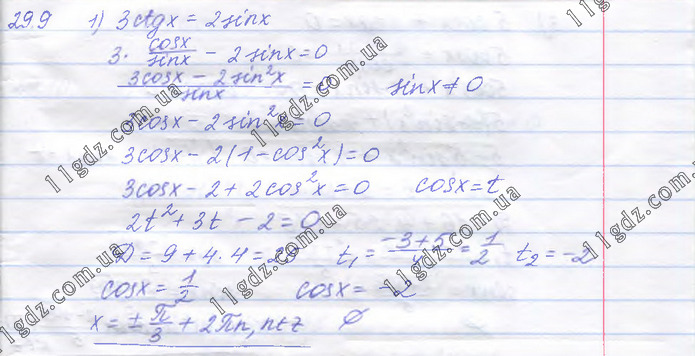 29.9 1) 3ctgx = 2sinx
3 · cosx/sinx − 2sinx = 0
(3cosx − 2sin²x)/sinx = 0 sinx ≠ 0
3cosx − 2sin²x = 0
3cosx − 2(1 − cos²x) = 0
3cosx − 2 + 2cos²x = 0 cosx = t
2t² + 3t − 2 = 0
D = 9 + 4·4 = 25 t₁ = (−3+5)/4 = 1/2 t₂ = −2
cosx = 1/2 cosx = −2
x = ± π/3 + 2πn, n∈z ∅
11gdz.com.ua
11gdz.com.ua
11gdz.com.ua
11gdz.com.ua
11gdz.com.ua
11gdz.com.ua